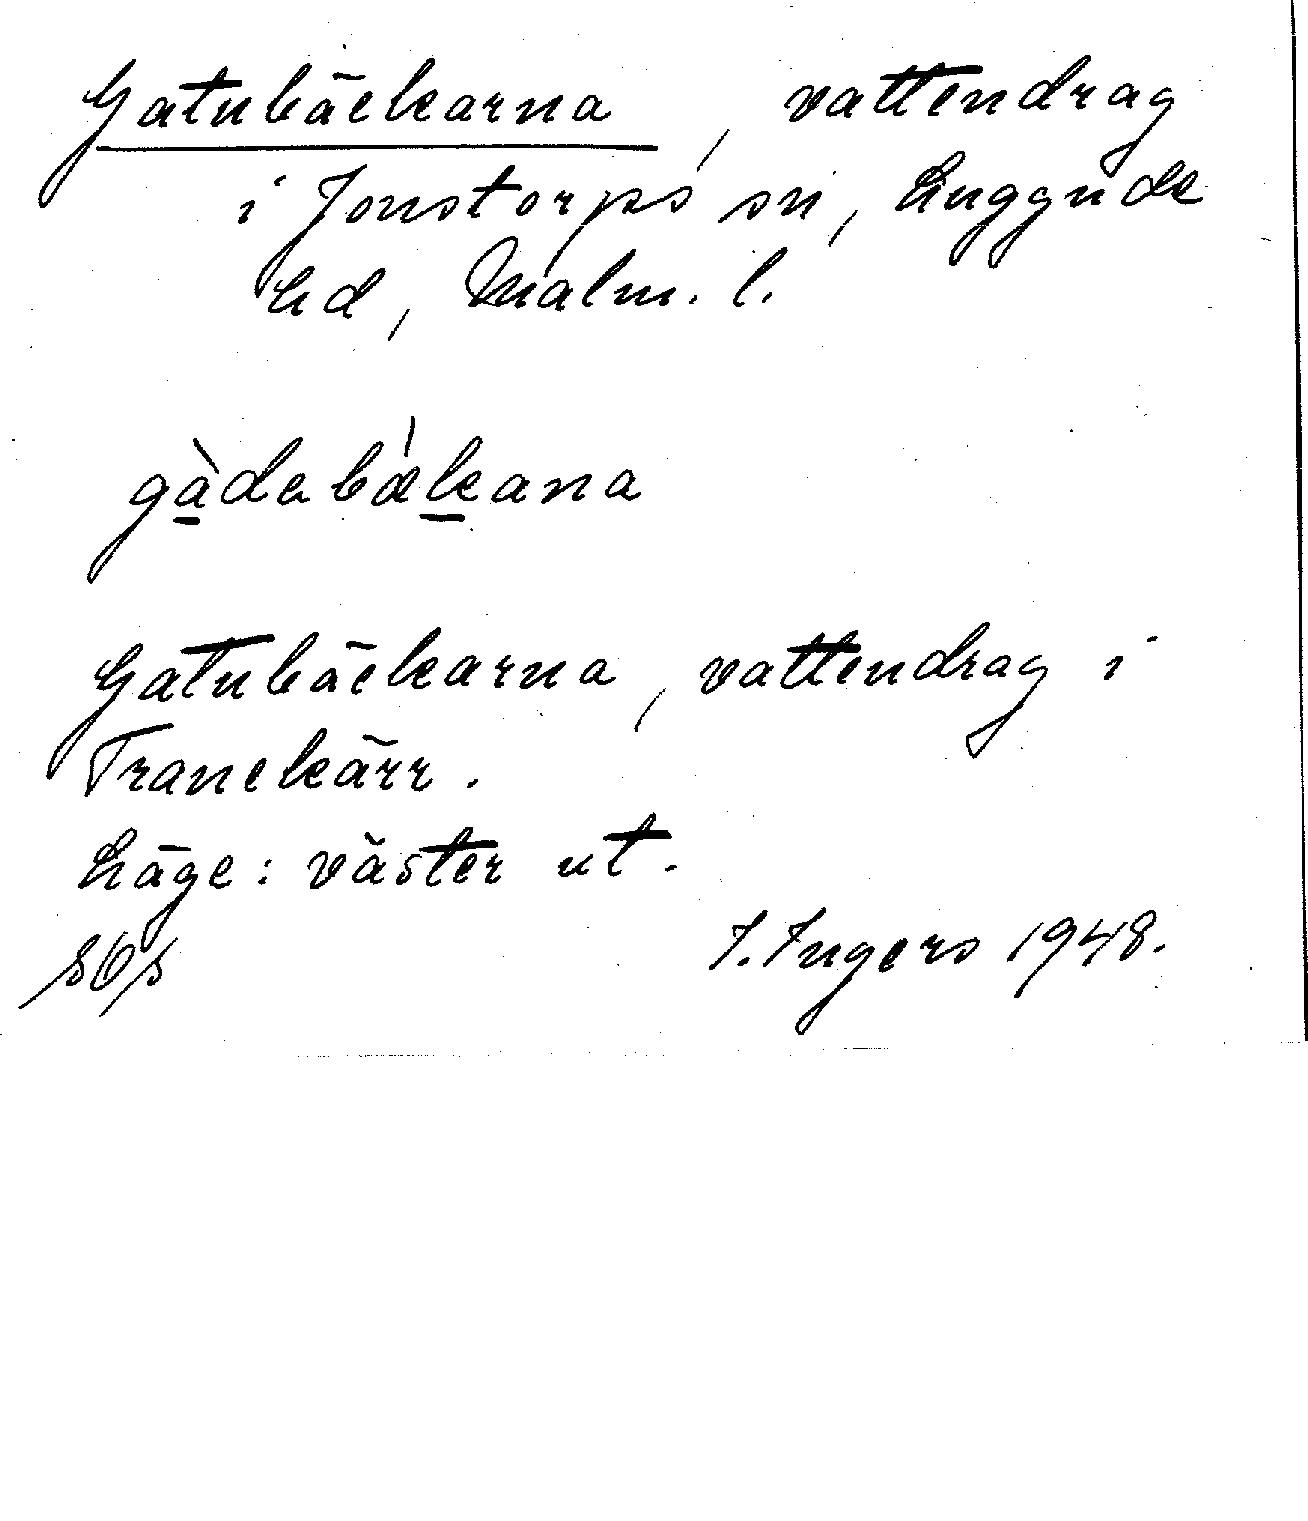 Gatubäckarna, vattendrag
i Jonstorps sn, Luggude
hd, Malm. l.
gàdabækana
Gatubäckarna, vattendrag i
Tranekärr.
Läge: väster ut.
I. Ingers 1948.